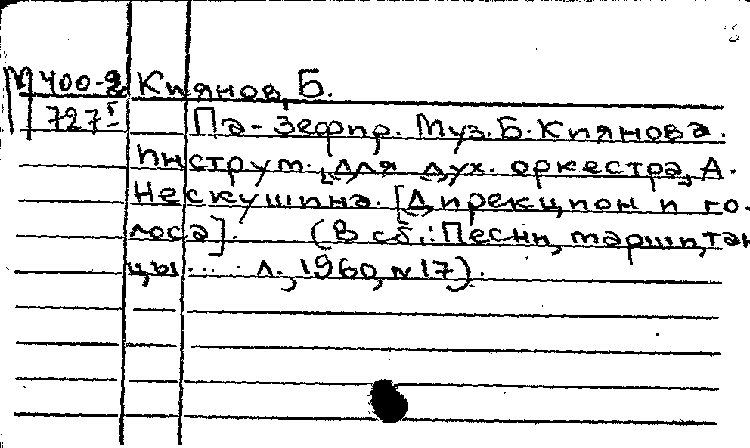 М 400-2 Киянов, Б.
727 I Па-Зефир. Муз. Б. Киянова.
Инструм. для дух. оркестра, А.
Нескушина. [Дирекцион и го-
лоса]. (В сб.: Песни, марши, тан
цы... Л., 1960, №17).